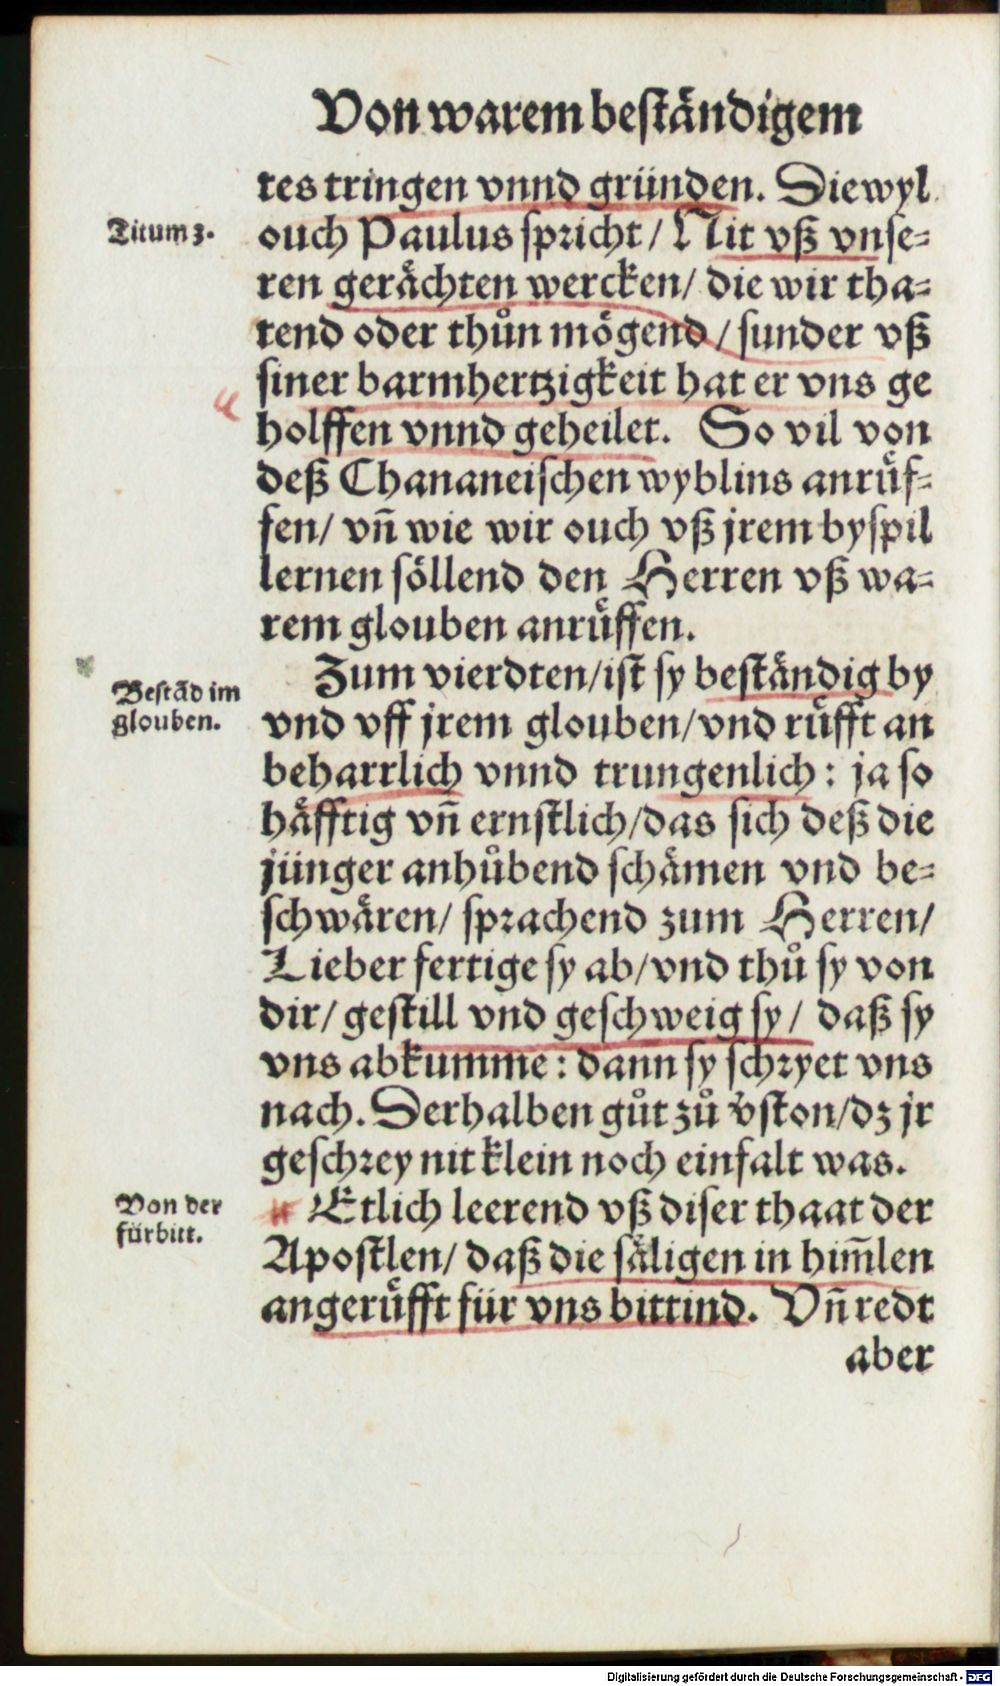 Von warem beständigem
tes tringen vnnd gründen. Diewyl
Titum 3.
ouch Paulus spricht / Nit vß vnse-
ren gerächten wercken / die wir tha-
tend oder thůn mögend / sunder vß
siner barmhertzigkeit hat er vns ge
holffen vnnd geheilet. So vil von
deß Chananeischen wyblins anrůf-
fen / vn̄ wie wir ouch vß jrem byspil
lernen söllend den Herren vß wa-
rem glouben anrůffen.
Zum vierdten / ist sy beständig by
Bestād im
glouben.
vnd vff jrem glouben / vnd růfft an
beharrlich vnnd trungenlich : ja so
häfftig vn̄ ernstlich / das sich deß die
jünger anhůbend schämen vnd be-
schwären / sprachend zum Herren /
Lieber fertige sy ab / vnd thů sy von
dir / gestill vnd geschweig sy / daß sy
vns abkumme : dann sy schryet vns
nach. Derhalben gůt zů v̄ston / dz jr
geschrey nit klein noch einfalt was.
Von der
fürbitt.
Etlich leerend vß diser thaat der
Apostlen / daß die säligen in him̄len
angerůfft für vns bittind. Vn̄ redt
aber
Digitalisierung gefördert durch die Deutsche Forschungsgemeinschaft - DFG